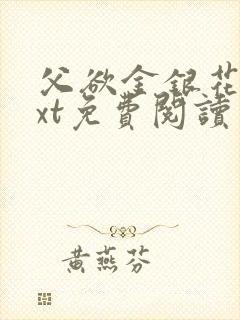 父欲金銀花
xt免費閱讀
黃燕芬